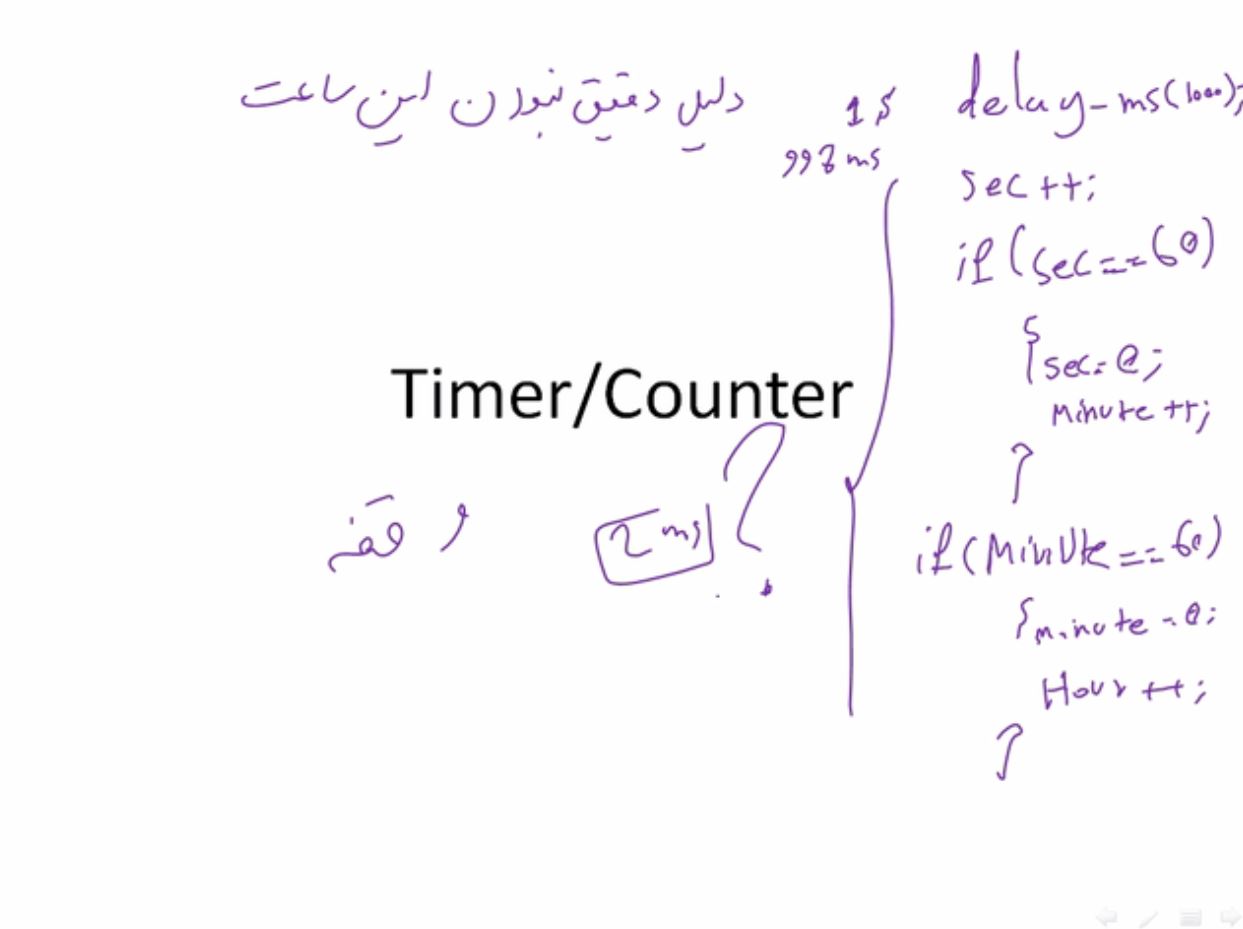 دلیل دقیق نبودن این ساعت
1s
998 ms
delay-ms(1000);
sec++;
if(sec==60)
{sec=0;
minute++;
}
if(Minute==60)
{minute=0;
Hour++;
}
Timer/Counter
2ms ?
وقفه